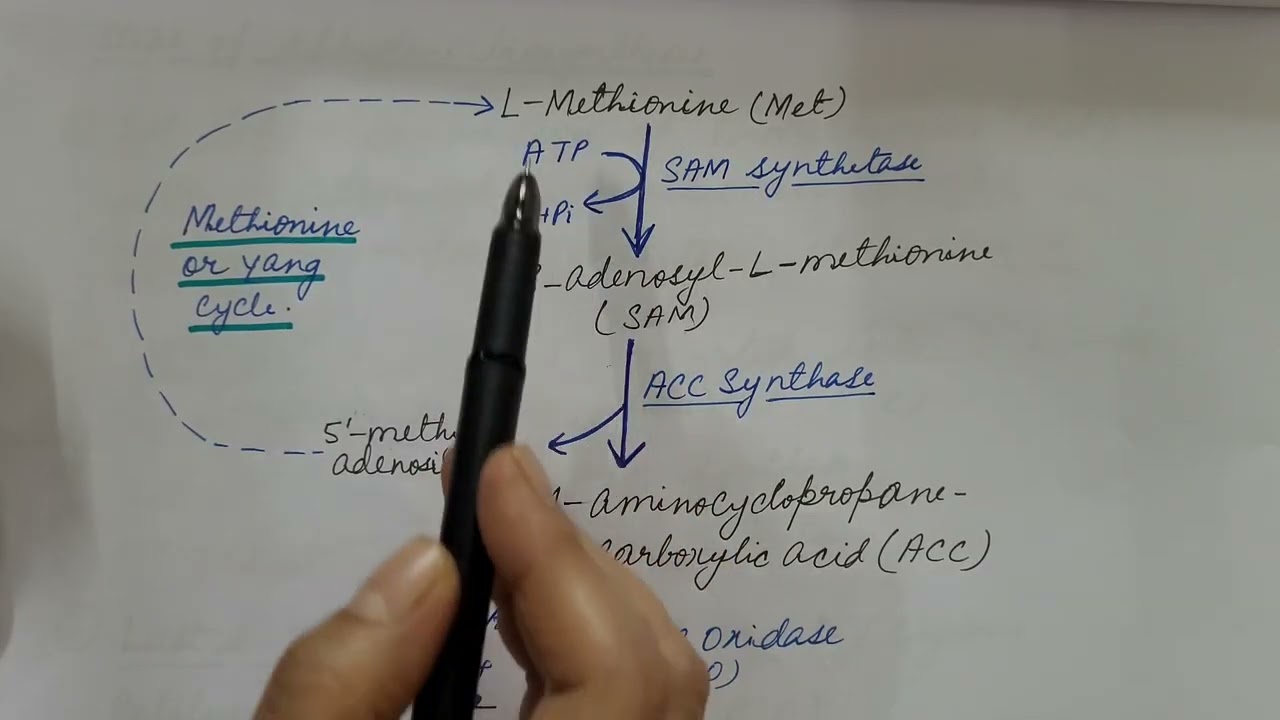 L-Methionine (Met)
ATP
SAM synthetase
+Pi
Methionine
or yang
cycle.
-adenosyl-L-methionine
(SAM)
ACC Synthase
5'-meth
adenosi
1-aminocyclopropane-
carboxylic acid (ACC)
oxidase